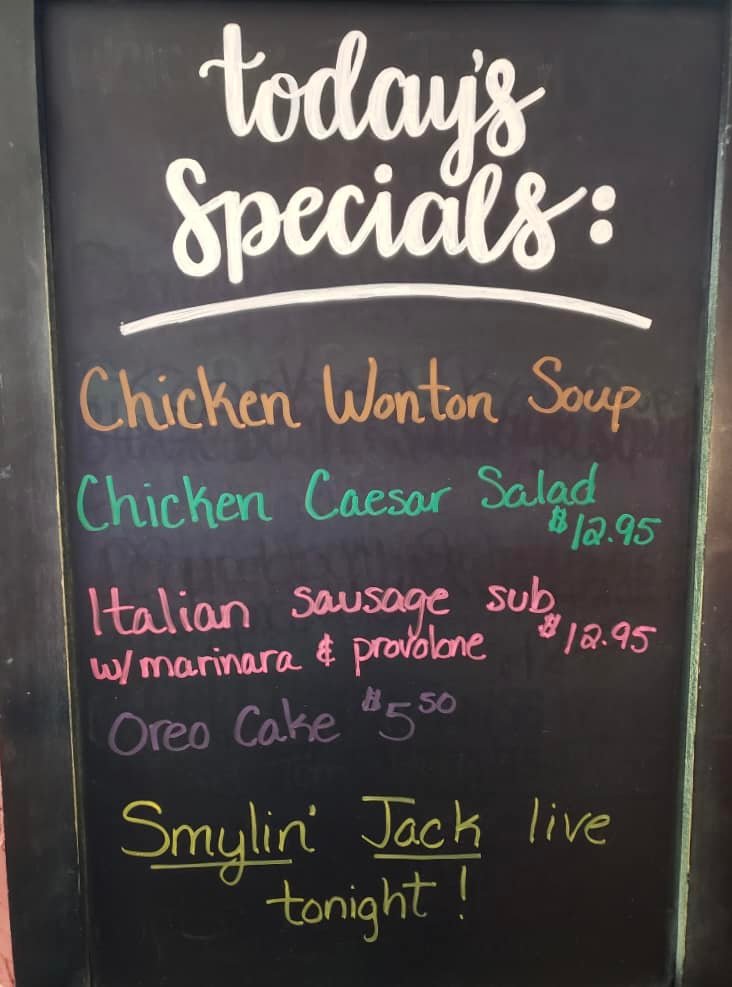 today's
Specials:
Chicken Wonton Soup
Chicken Caesar Salad
$12.95
Italian sausage sub
w/ marinara & provolone $12.95
Oreo Cake $5 50
Smylin' Jack live
tonight!